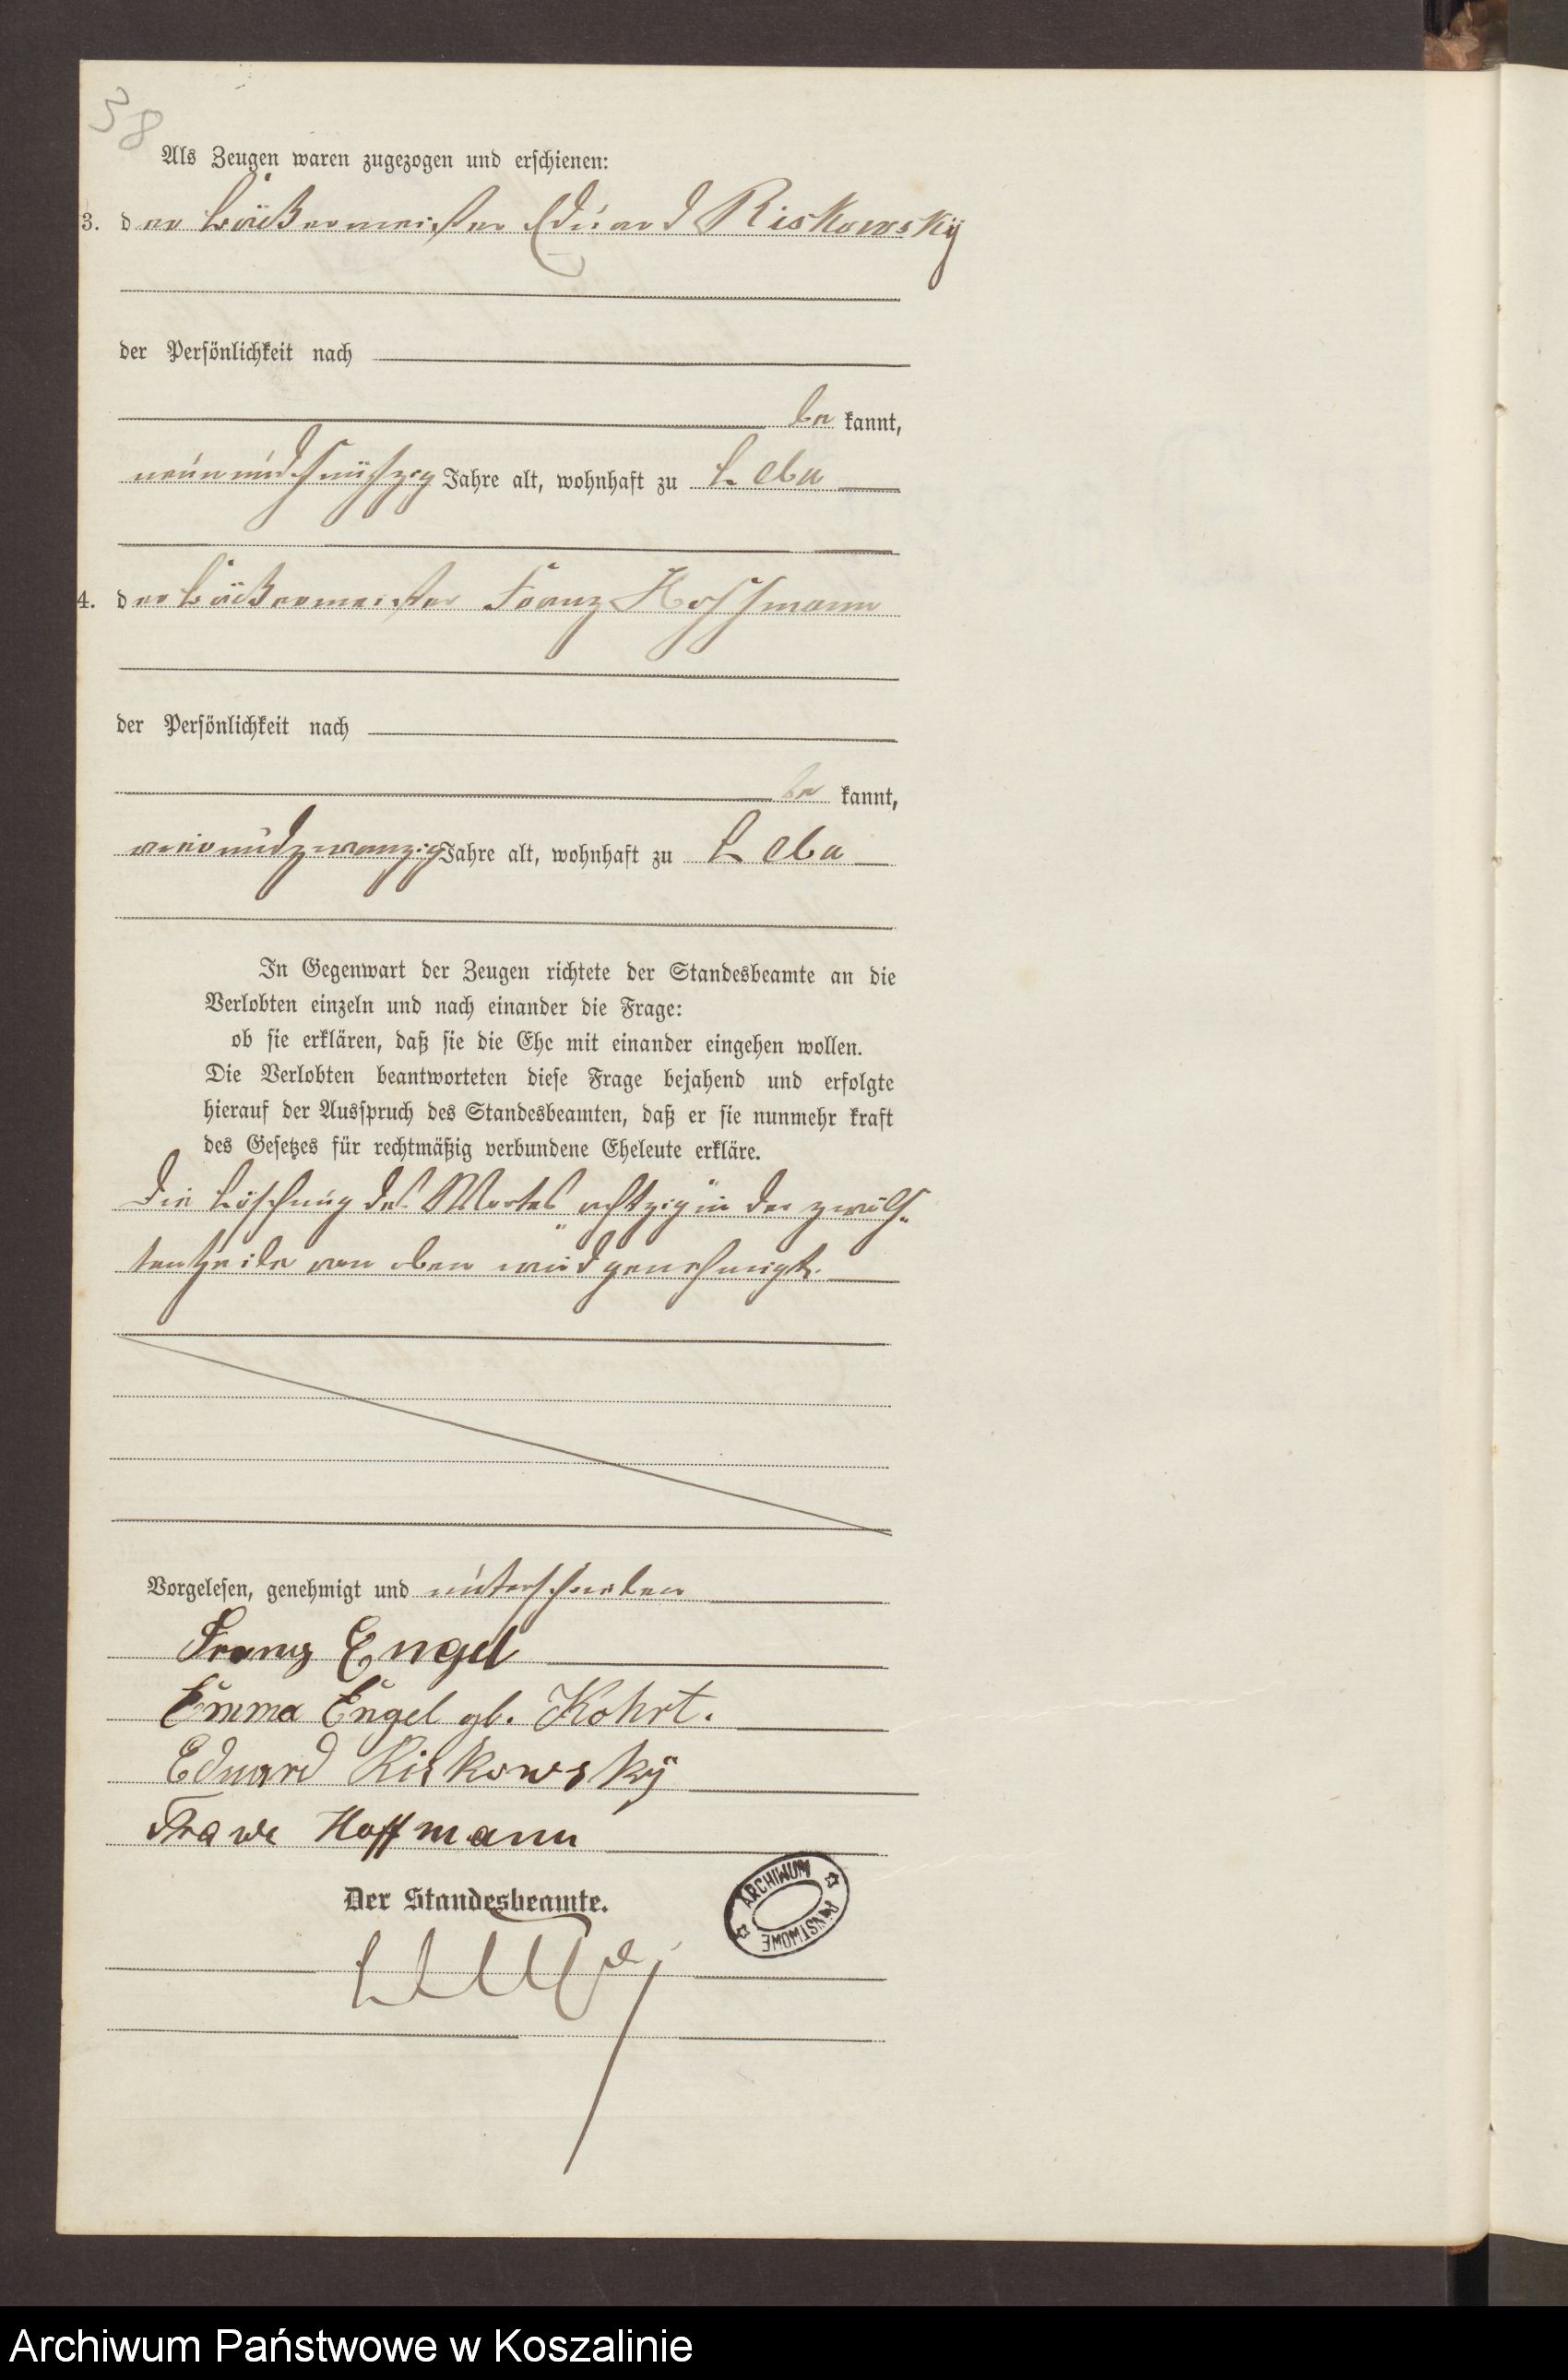 38
Als Zeugen waren zugezogen und erschienen:
3. der Bäckermeister Eduard Riskowsky
der Persönlichkeit nach
be kannt,
neunundfünfzig Jahre alt, wohnhaft zu Leba
4. der Bäckermeister Franz Hoffmann
der Persönlichkeit nach
be kannt,
vierundzwanzig Jahre alt, wohnhaft zu Leba
In Gegenwart der Zeugen richtete der Standesbeamte an die
Verlobten einzeln und nach einander die Frage:
ob sie erklären, daß sie die Ehe mit einander eingehen wollen.
Die Verlobten beantworteten diese Frage bejahend und erfolgte
hierauf der Ausspruch des Standesbeamten, daß er sie nunmehr kraft
des Gesetzes für rechtmäßig verbundene Eheleute erkläre.
Die Löschung des Wortes "achtzig" in der zwölf-
ten Zeile von oben wird genehmigt.
Vorgelesen, genehmigt und unterschrieben
Franz Engel
Emma Engel gb. Kohrt.
Eduard Riskowsky
Hoffmann
Der Standesbeamte.
ARCHIWUM PAŃSTWOWE
Archiwum Państwowe w Koszalinie